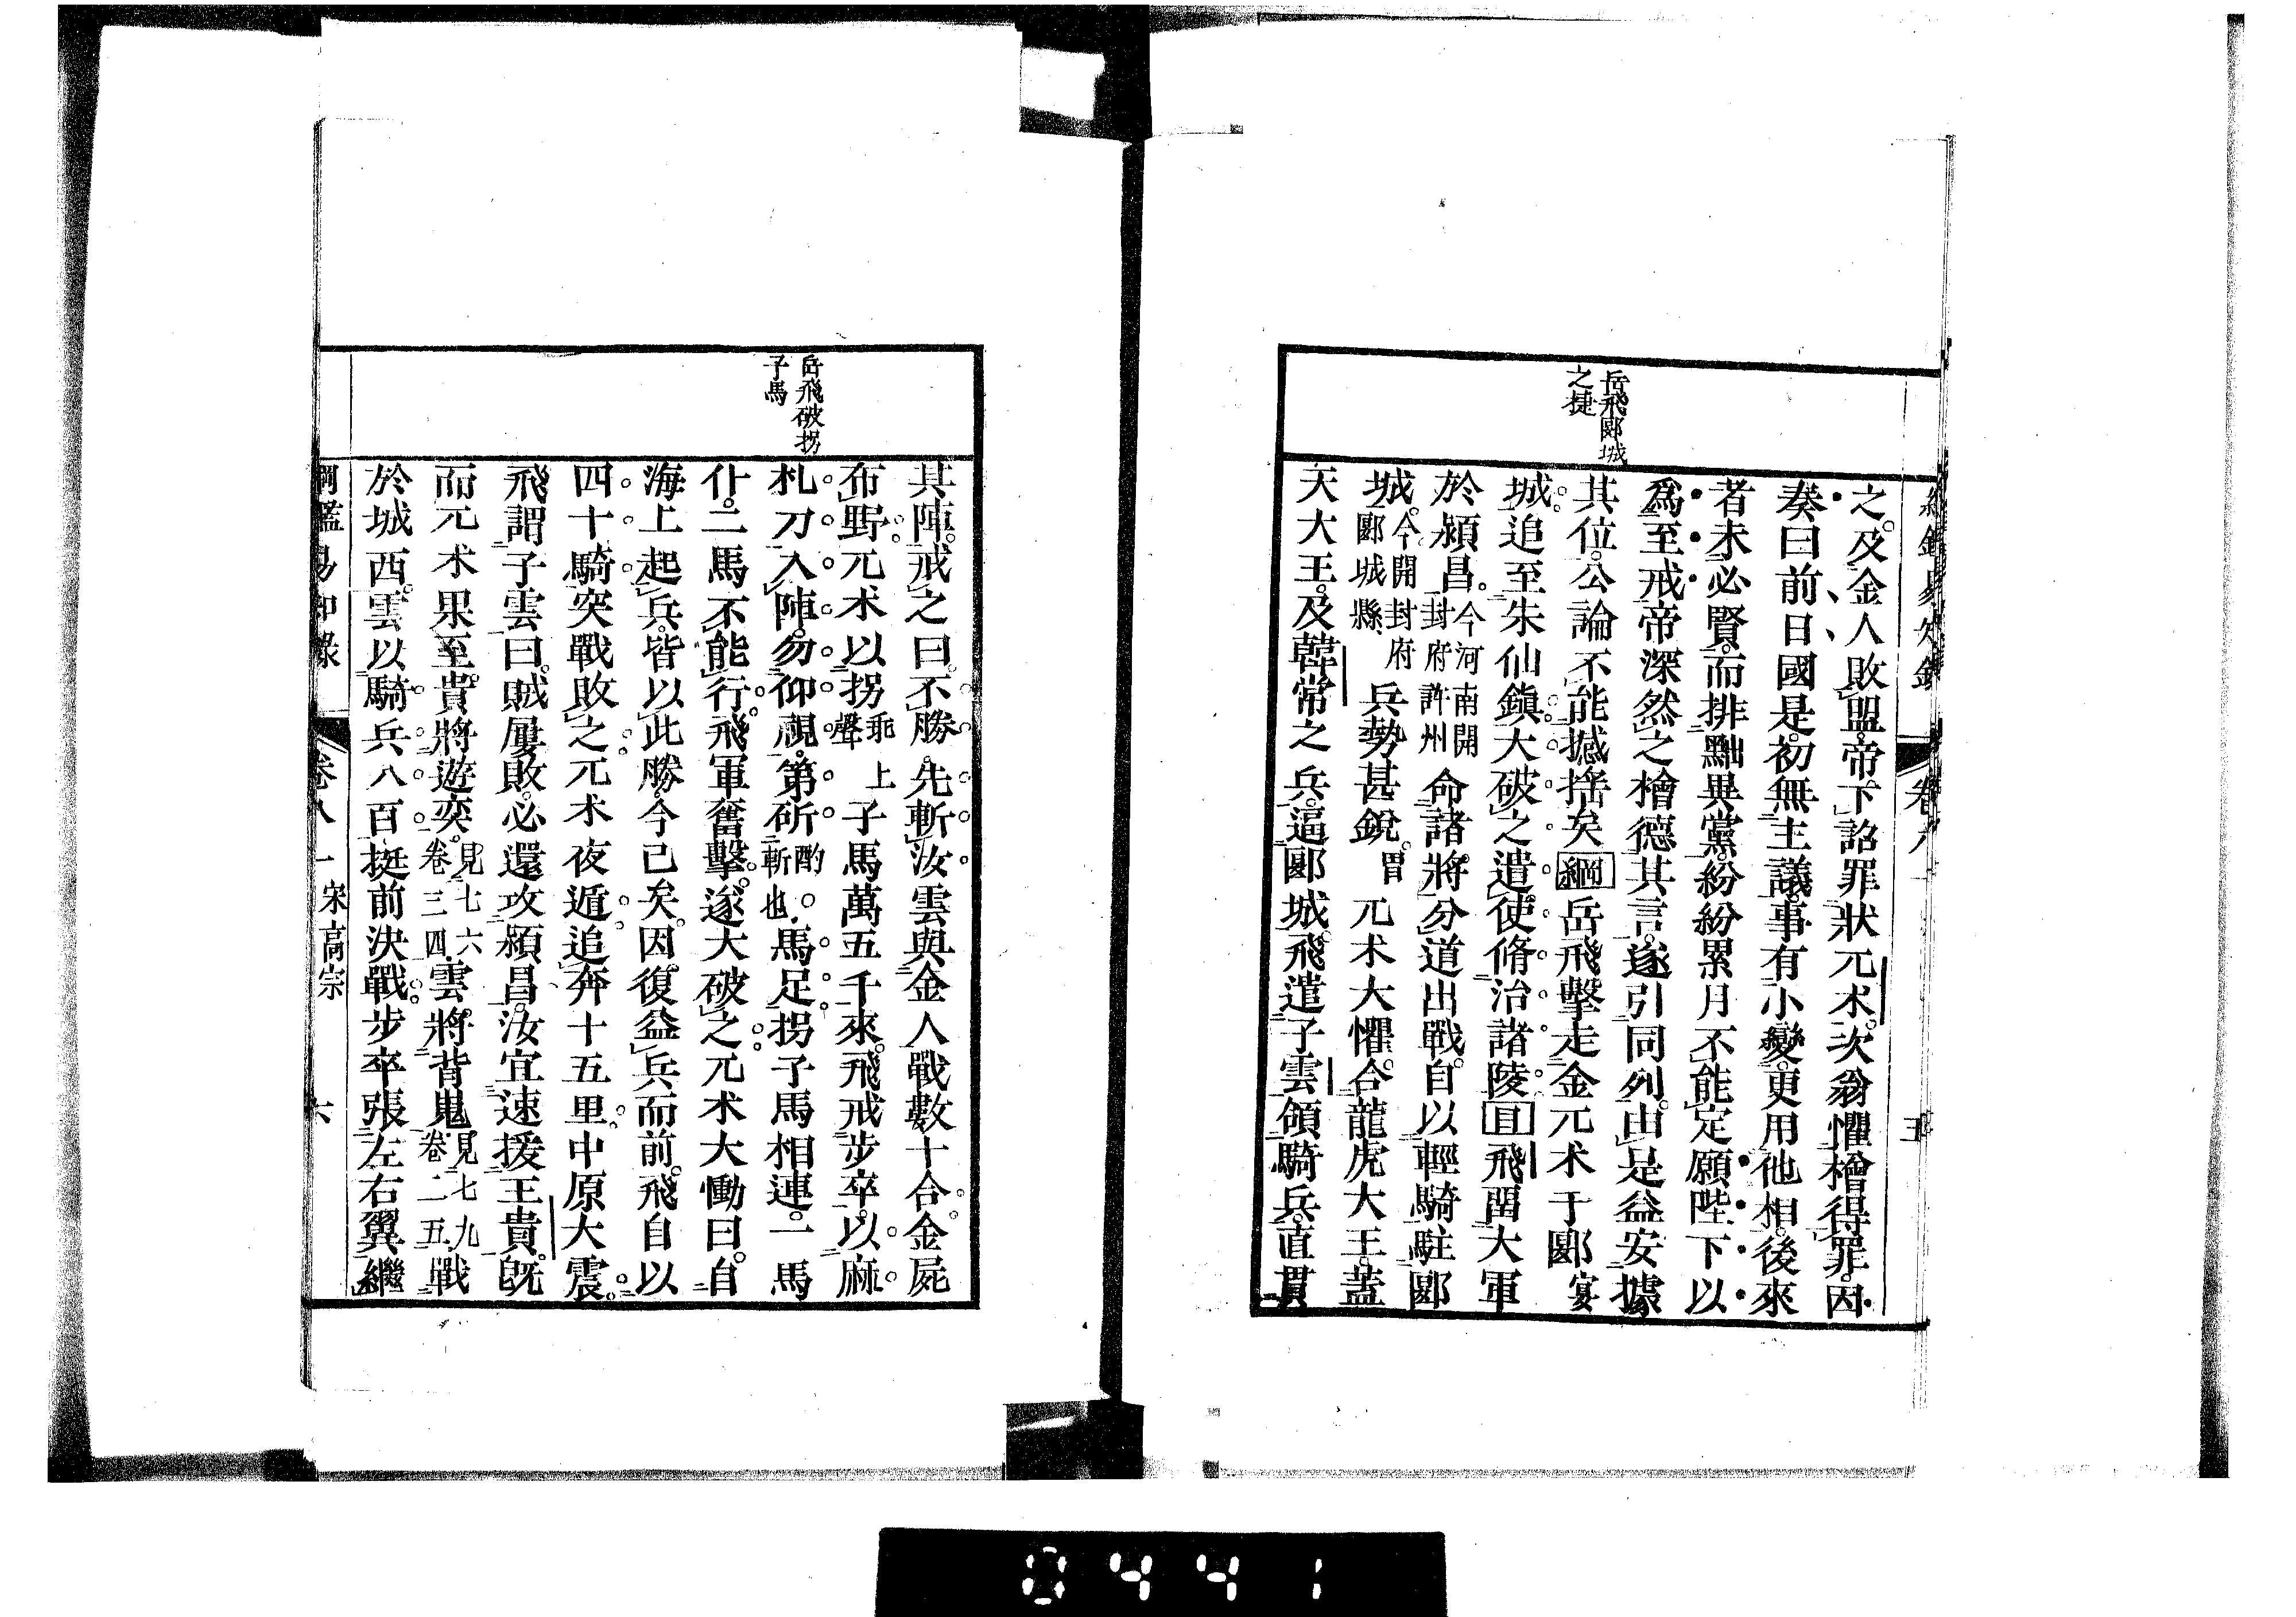 綱鑑易知錄 卷八 五
岳飛郾城
之捷
之。及金人敗盟。帝下詔罪狀兀朮。次翁懼檜得罪。因
奏曰。前日國是。初無主議。事有小變。更用他相。後來
者未必賢。而排黜異黨。紛紛累月不能定。願陛下以
爲至戒。帝深然之。檜德其言。遂引同列。由是益安據
其位。公論不能撼搖矣。綱岳飛擊走金兀朮于郾宴
城。追至朱仙鎮。大破之。遣使脩治諸陵。目飛留大軍
於潁昌。今河南開封府許州命諸將分道出戰。自以輕騎駐郾
城。今開封府郾城縣兵勢甚銳。胃兀朮大懼。合龍虎大王。蓋
天大王。及韓常之兵。逼郾城。飛遣子雲領騎兵直貫
岳飛破拐
子馬
其陣。戒之曰。不勝。先斬汝。雲與金人戰數十合。金屍
布野。兀朮以拐乖上聲子馬萬五千來。飛戒步卒。以麻
札刀入陣。勿仰視。第斫酌。斬也。馬足。拐子馬相連。一馬
仆。二馬不能行。飛軍奮擊。遂大破之。兀朮大慟曰。自
海上起兵。皆以此勝。今已矣。因復益兵而前。飛自以
四十騎突戰敗之。兀朮夜遁。追奔十五里。中原大震。
飛謂子雲曰。賊屢敗。必還攻潁昌。汝宜速援王貴。旣
而兀朮果至。貴將遊奕。見七六卷三四雲將背嵬。見七九卷二五戰
於城西。雲以騎兵八百挺前決戰。步卒張左右翼繼
綱鑑易知錄 卷八一 宋高宗 六
0441